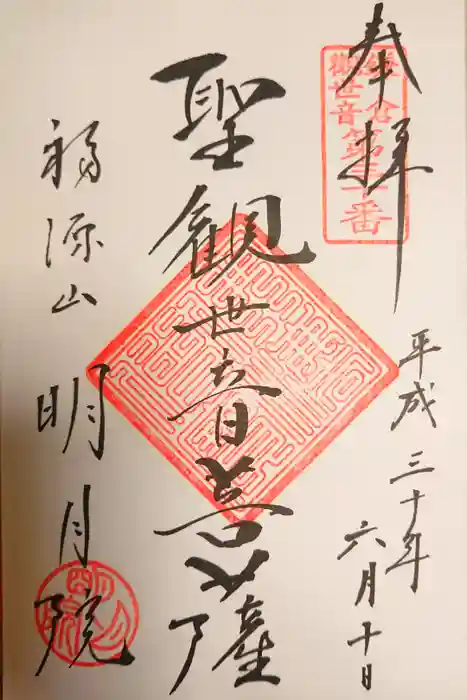 奉拝
鎌倉
観世音
第三十番
平成三十年
六月十日
聖観世音菩薩
福源山
明月院